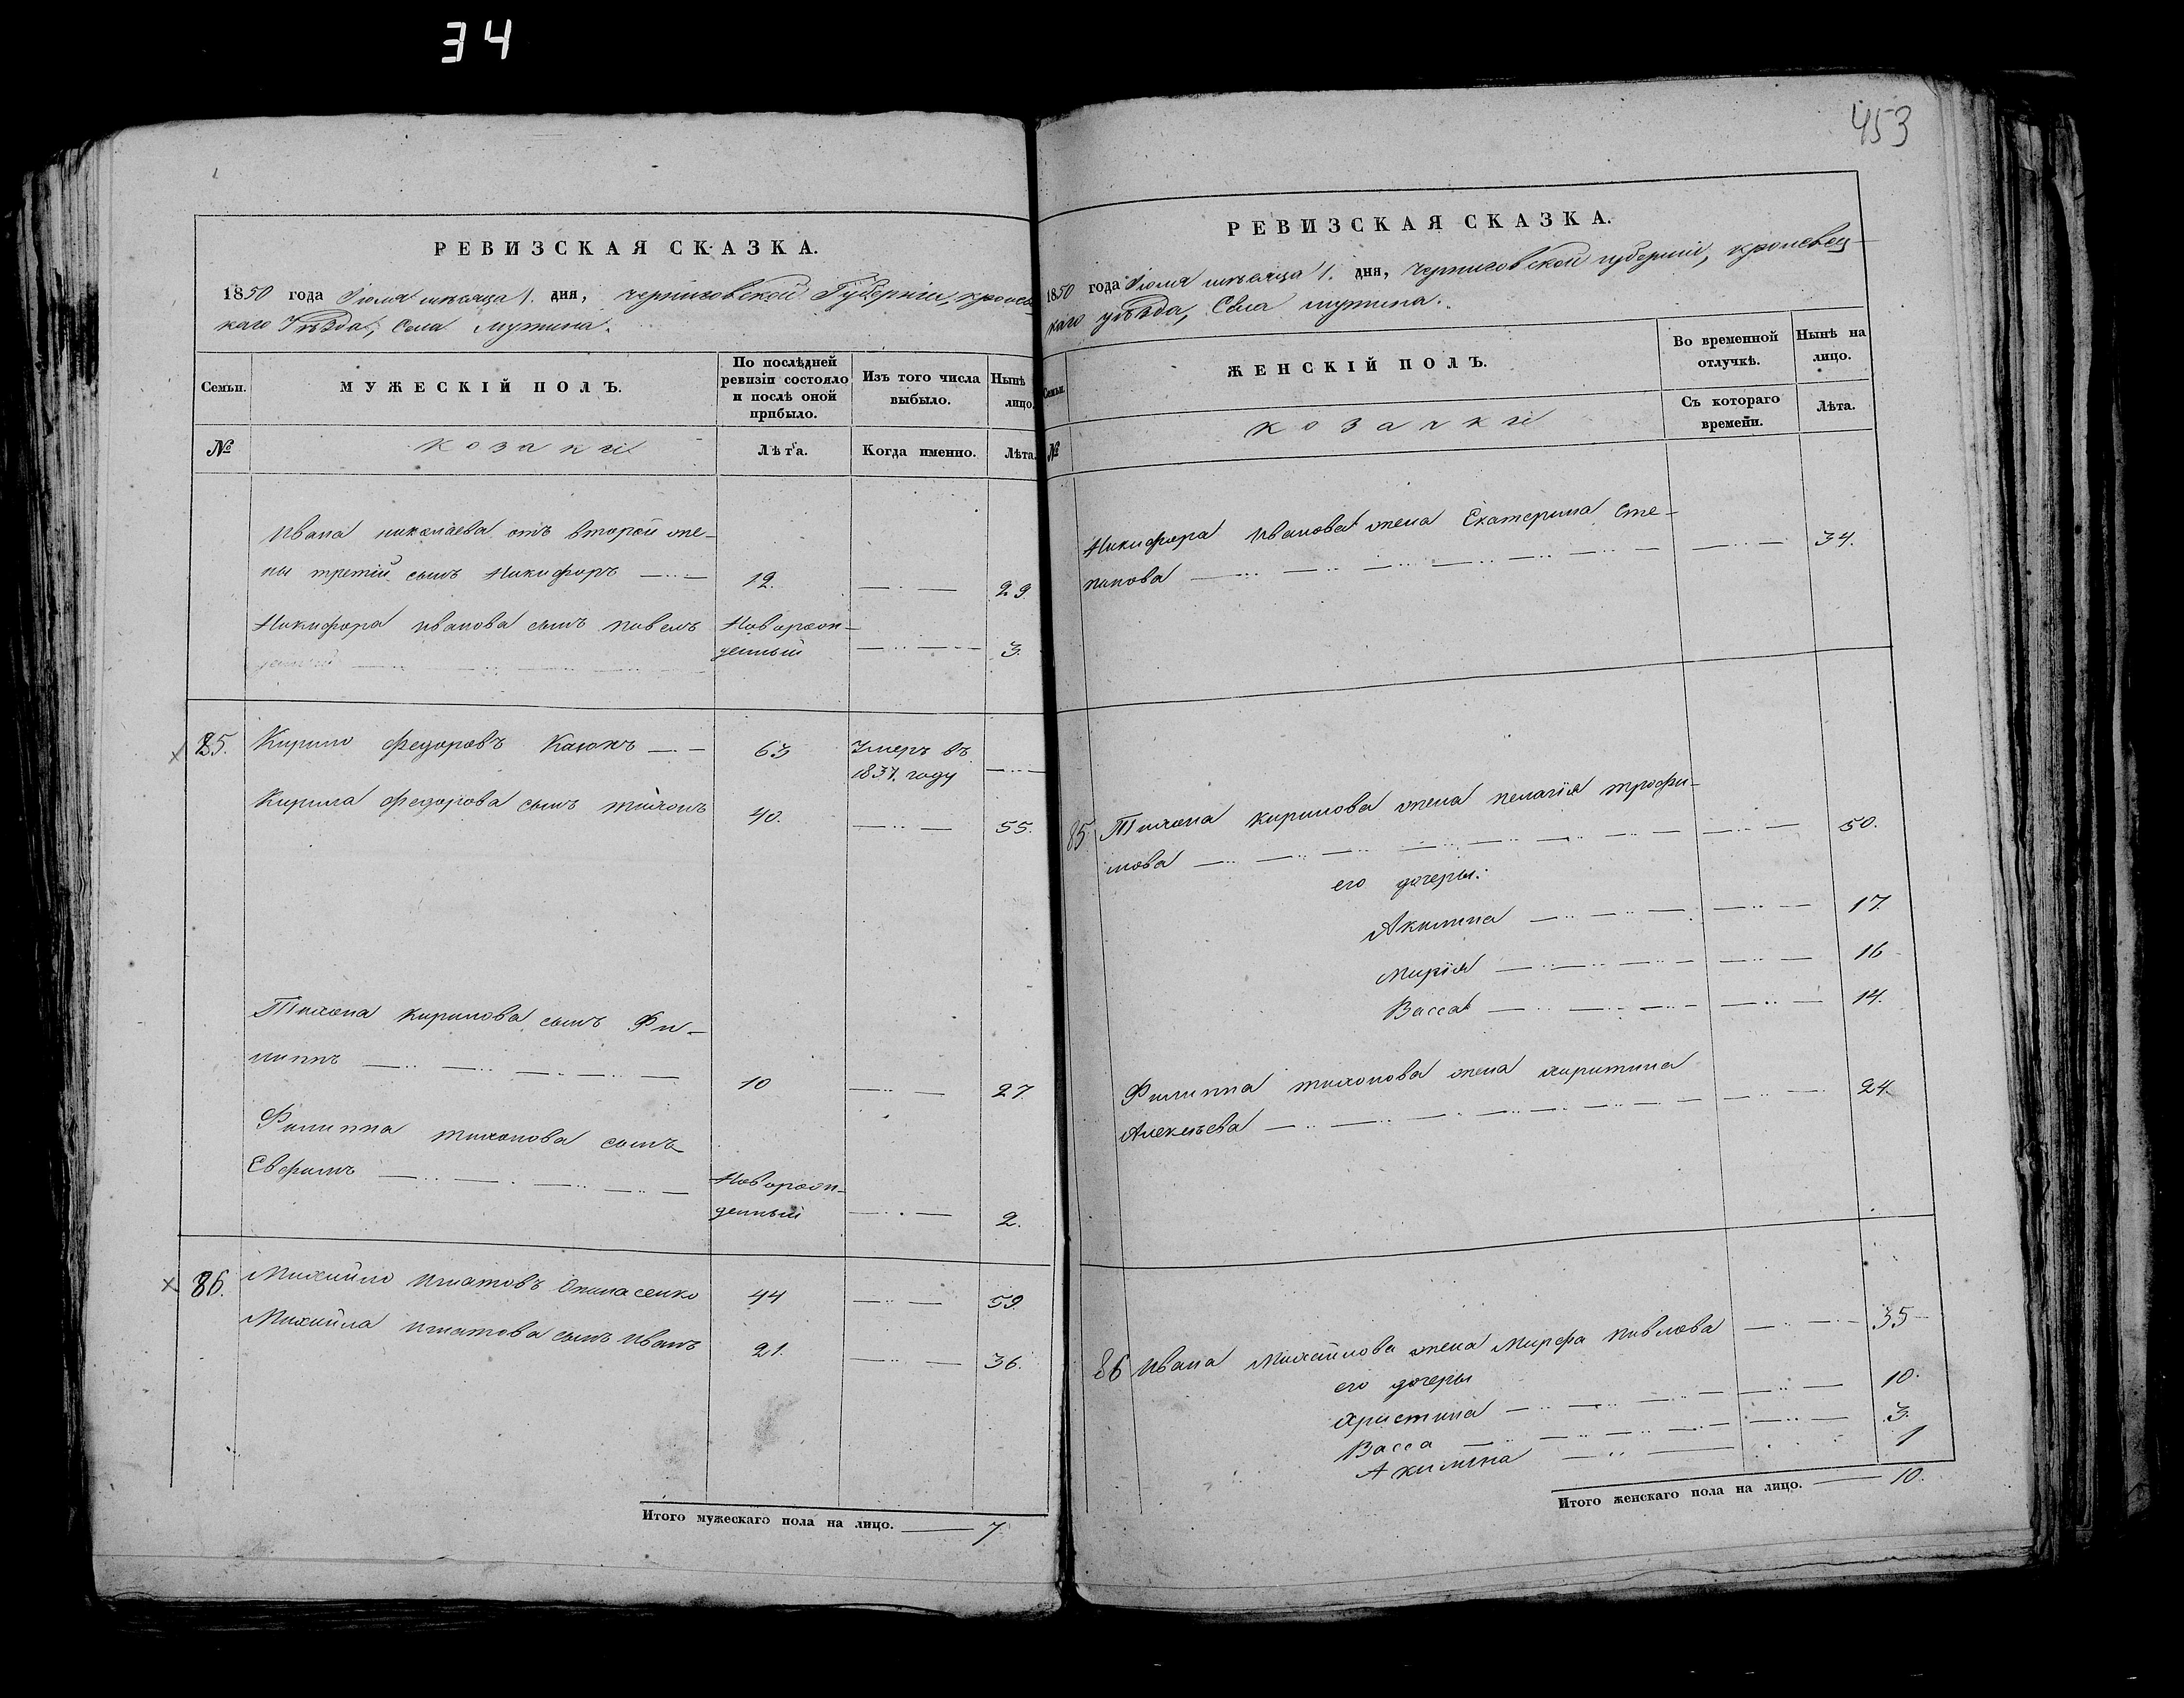 34
453
РЕВИЗСКАЯ СКАЗКА.
1850 года Июля мѣсяца 1. дня, Черниговской Губерніи, кролев
каго Уѣзда, Села Мутина.
Семьи.
МУЖЕСКІЙ ПОЛЪ.
По послѣдней
ревизіи состояло
и послѣ оной
прибыло.
Изъ того числа
выбыло.
Нынѣ
лицо.
№
козаки
Лѣта.
Когда именно.
Лѣта.
Ивана николаева отъ второй же-
ны третій сынъ Никифоръ 12. 29.
Никифора иванова сынъ павелъНоворож-
денный 3.
85. Кирило федоровъ Каюкъ 63 Умеръ въ
1837. году
Кирила федорова сынъ тихонъ 40. 55.
Тихона кирилова сынъ Фи-
липпъ 10 27.
Филиппа тихонова сынъ
Евфимъ Новорож-
денный 2.
86. Михайло игнатовъ Опанасенко 44 59.
Михайла игнатова сынъ иванъ 21. 36.
Итого мужескаго пола на лицо. 7.
РЕВИЗСКАЯ СКАЗКА.
1850 года Июля мѣсяца 1. дня, Черниговской губерніи, кролевец-
каго уѣзда, Села мутина.
Семьи.
ЖЕНСКІЙ ПОЛЪ.
Во временной
отлучкѣ.
Нынѣ на
лицо.
№
козачки
Съ котораго
времени.
Лѣта.
Никифора иванова жена Екатерина Сте-
панова 34.
85. Тихона кирилова жена пелагія трофи-
мова 50.
его дочеры:
Акилина 17.
Марія 16
Васса 14.
Филиппа тихонова жена харитина
Алексѣева 24.
86 Ивана Михайлова жена Марфа павлова 35
его дочеры
Христина 10.
Васса 3.
Акилина 1
Итого женскаго пола на лицо. 10.